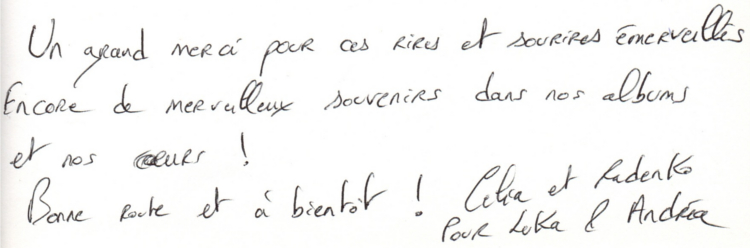 Un grand merci pour ces rires et sourires émerveillés
Encore de merveilleux souvenirs dans nos albums
et nos cœurs !
Bonne route et à bientôt ! Célia et Radenko
Pour Luka & Andréa